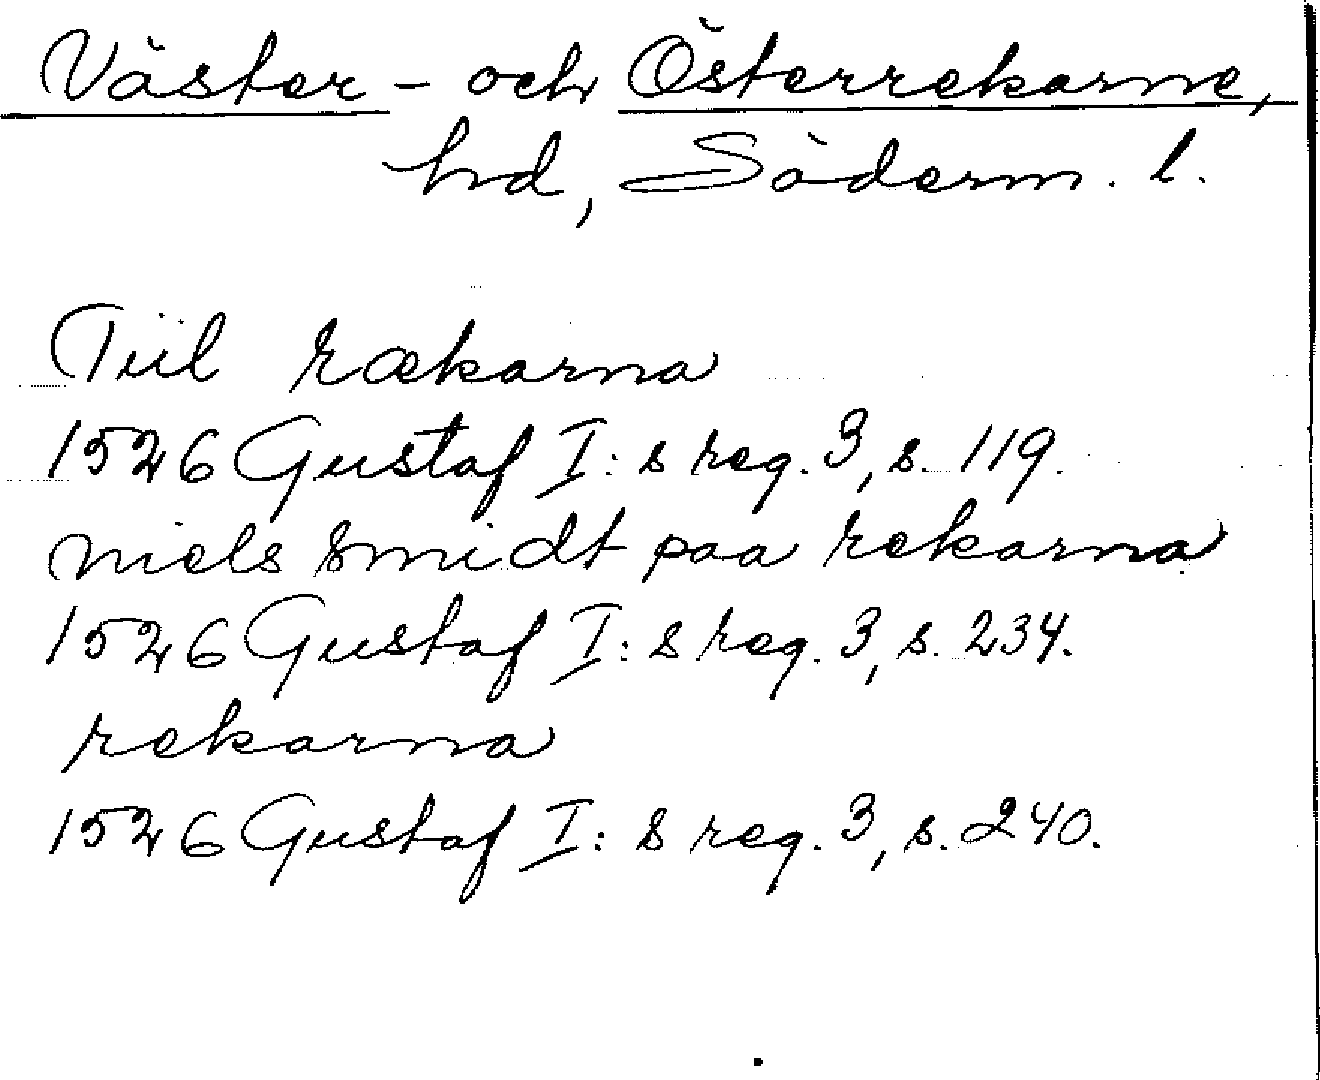 Väster- och Österrekarne,
hd, Söderm. l.
Tiil rækarna
1526 Gustaf I:s reg. 3, s. 119.
niels smidt paa rekarna
1526 Gustaf I:s reg. 3, s. 234.
rekarna
1526 Gustaf I:s reg. 3, s. 240.